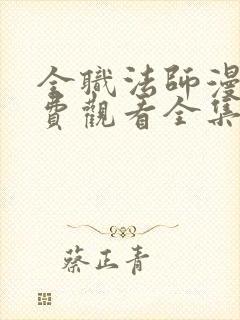 全職法師漫
費觀看全集
蔡正青